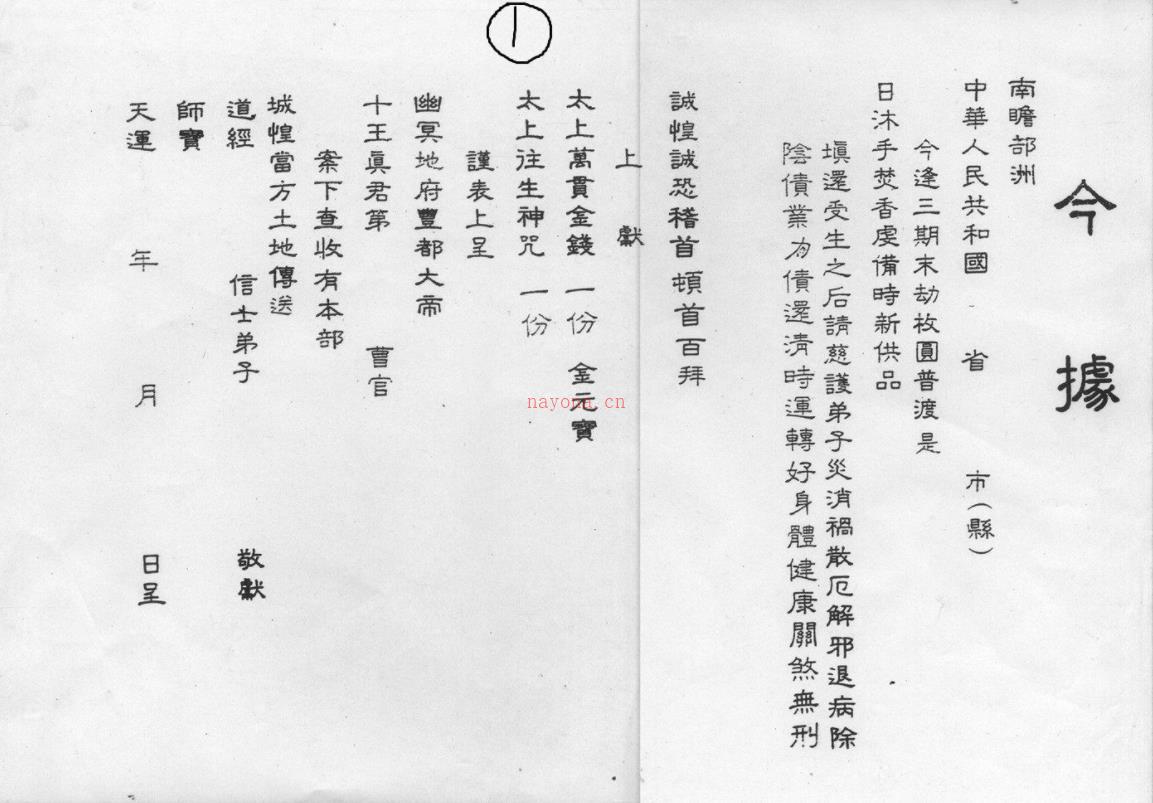 ①
今據
南瞻部洲
中華人民共和國 省 市(縣)
今逢三期末劫收圓普渡是
日沐手焚香虔備時新供品
填還受生之后請慈護弟子災消禍散厄解邪退病除
陰債業力債還清時運轉好身體健康關煞無刑
誠惶誠恐稽首頓首百拜
上獻
太上萬貫金錢一份 金元寶
太上往生神咒一份
謹表上呈
幽冥地府豐都大帝
十王真君第 曹官
案下查收有本部
城惶當方土地傳送
道經 信士弟子 敬獻
師寶
天運 年 月 日呈
nayona.cn